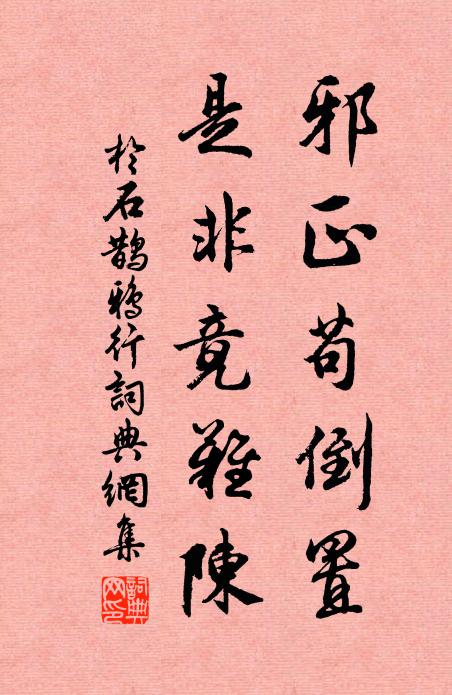 邪正苟倒置
是非竟難陳
於石鵲鴉行詞典網集
詞典
网色